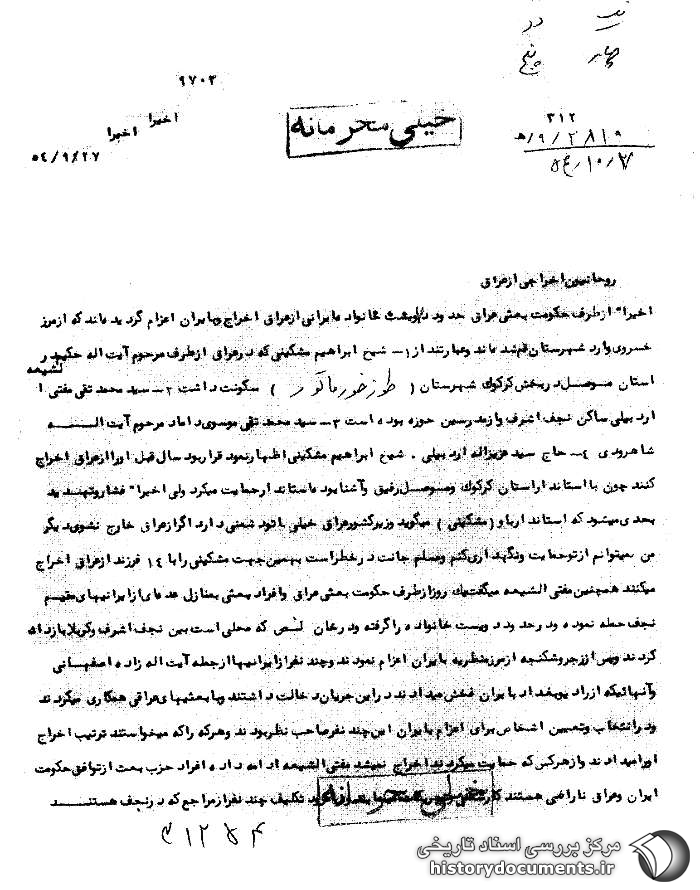 چهار
پنج
۹۷۰۳
اخیرا اخیرا
خیلی محرمانه
۳۱۲
۵۴/۹/۲۷
۵۴/۱۰/۷
روحانیون اخراجی ازعراق
اخیرا" ازطرف حکومت بعثی عراق حدود دویست خانواده ایرانی ازعراق اخراج وبایران اعزام گردیده‌اند که ازمرز
خسروی وارد شهرستان قم شده‌اند وعبارتند از ۱- شیخ ابراهیم مشکینی که درعراق ازطرف مرحوم آیت اله حکیم در
استان موصل دربخش کرکوک شهرستان ( طوزخورماتو ) سکونت داشت ۲- سید محمد تقی مفتی الشیعه
اردبیلی ساکن نجف اشرف وازمدرسین حوزه بوده است ۳- سید محمد تقی موسوی داماد مرحوم آیت الـــــه
شاهرودی ۴- حاج سید عزیزاله اردبیلی . شیخ ابراهیم مشکینی اظهارنمود قراربود سال قبل اورا ازعراق اخراج
کنند چون با استاندار استان کرکوک وموصل رفیق وآشنا بود استاندارحمایت میکرد ولی اخیرا" فشاروتهدید
بحدی میشود که استاندارباو (مشکینی ) میگوید وزیرکشورعراق خیلی باتود شمنی دارد اگرازعراق خارج نشوی دیگر
من نمیتوانم ازتوحمایت ونگهداری کنم ومسلم جانت درخطراست بهمین جهت مشکینی را با ۱۴ فرزند ازعراق اخراج
میکنند همچنین مفتی الشیعه میگفت یک روزازطرف حکومت بعثی عراق وافراد بعثی بمنازل عده‌ای ازایرانیهای مقیـــم
نجف حمله نموده ودرحدود دویست خانواده راگرفته ودرخان که محلی است بین نجف اشرف وکربلا بازداشت
کردند وپس اززجروشکنجه ازمرزمنظریه بایران اعزام نمودند وچند نفرازایرانیها ازجمله آیت اله زاده اصفهـــانی
وآنهائیکه ازرادیوبغداد بایران فحش میدادند دراین جریان دخالت داشتند وبا بعثیهای عراقی همکاری میکردند
ودرانتخاب وتعیین اشخاص برای اعزام بایران این چند نفرصاحب نظربودند وهرکه راکه میخواستند ترتیب اخراج
اورامیدادند وازهرکس که حمایت میکردند اخراج نمیشد مفتی الشیعه ادامه داده افراد حزب بعث ازتوافق حکومت
ایران وعراق ناراضی هستند تکلیف چند نفرازمراجع که درنجف هستنـــــد
خیلی محرمانه
۳۱۲۵۴
مرکز بررسی اسناد تاریخی
historydocuments.ir